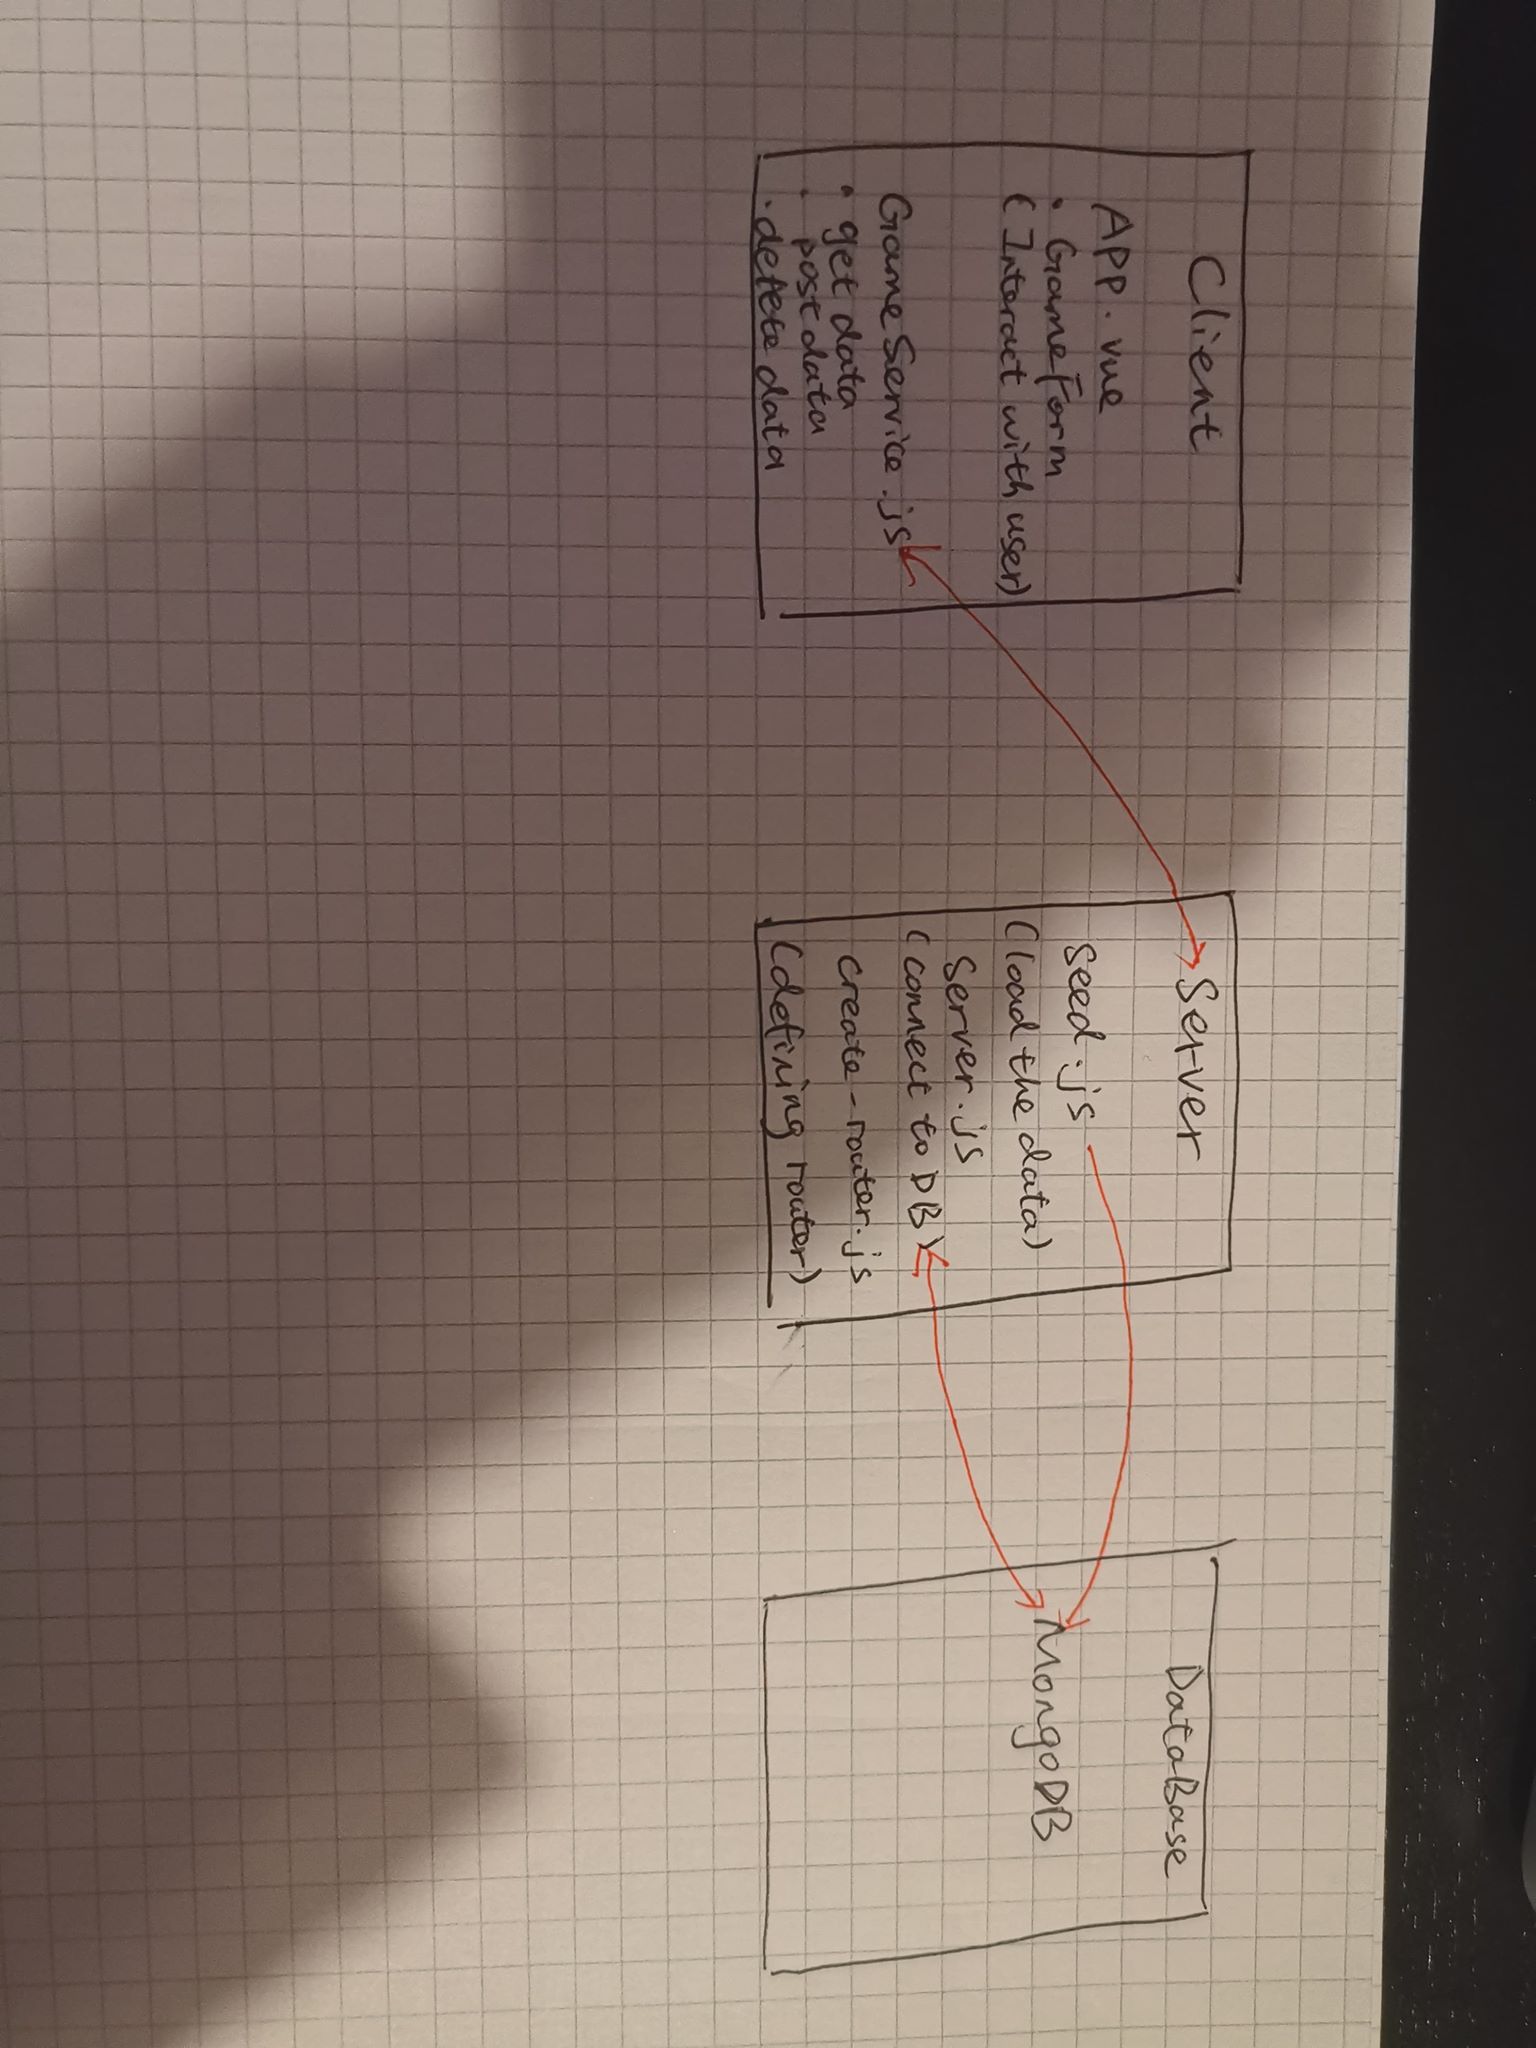 Client
APP.vue
• GameForm
(Interact with user)
GameService.js
• get data
• post data
• delete data
Server
seed.js
(load the data)
Server.js
(connect to DB)
create-router.js
(defining router)
DataBase
MongoDB